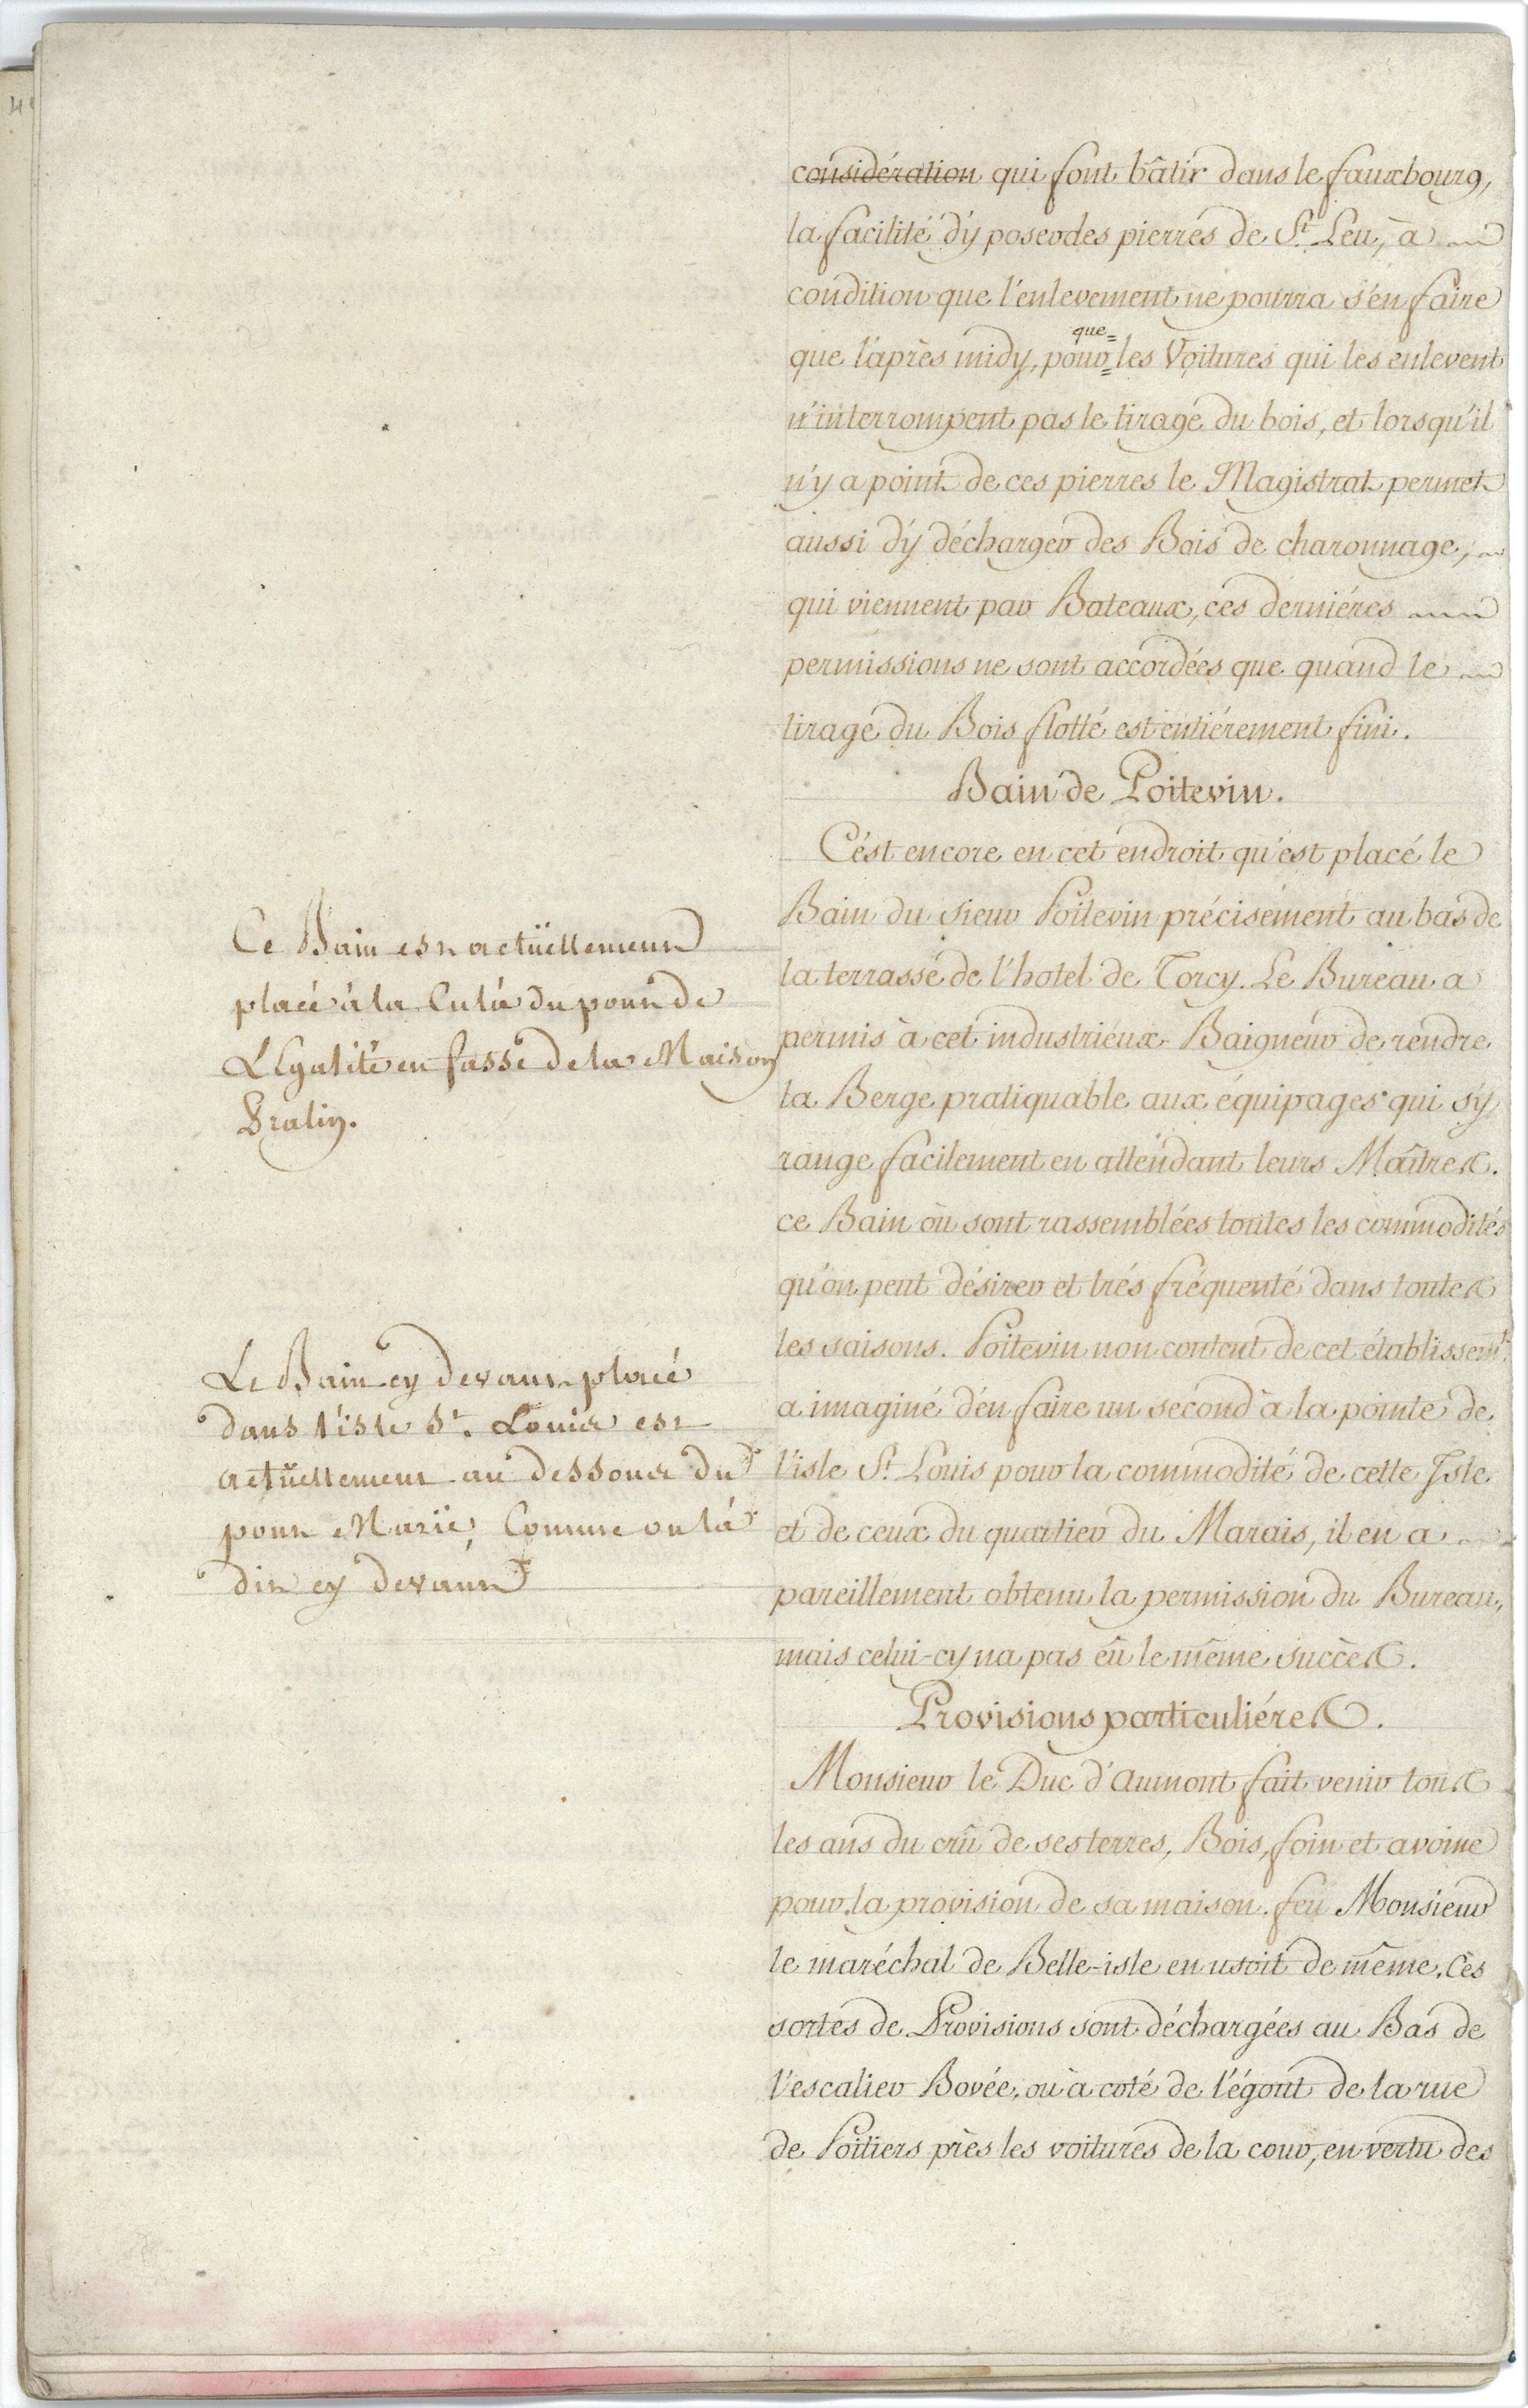 considération qui font bâtir dans le fauxbourg,
la facilité d'y poser des pierres de St. Leu, à
condition que l'enlevement ne pourra s'en faire
que l'après midy, pour que les Voitures qui les enlevent
n'interrompent pas le tirage du bois, et lorsqu'il
n'y a point de ces pierres le Magistrat permet
aussi d'y décharger des Bois de charonnage,
qui viennent par Bateaux, ces derniéres
permissions ne sont accordées que quand le
tirage du Bois flotté est entiérement fini.
Bain de Poitevin.
C'est encore en cet endroit qu'est placé le
Bain du sieur Poitevin précisément au bas de
la terrasse de l'hotel de Torcy. Le Bureau a
permis à cet industrieux Baigneur de rendre
la Berge pratiquable aux équipages qui s'y
range facilement en attendant leurs Maîtres.
ce Bain où sont rassemblées toutes les commodités
qu'on peut désirer et trés fréquenté dans toutes
les saisons. Poitevin non content de cet établissemt.
a imaginé d'en faire un second à la pointe de
l'isle St. Louis pour la commodité de cette Isle
et de ceux du quartier du Marais, il en a
pareillement obtenu la permission du Bureau,
mais celui-cy na pas eû le même succès.
Provisions particuliéres.
Monsieur le Duc d'aumont fait venir tous
les ans du crû de ses terres, Bois, foin et avoine
pour la provision de sa maison. feu Monsieur
le maréchal de Belle-isle en usoit de même. Ces
sortes de Provisions sont déchargées au Bas de
l'escalier Bovée, ou à coté de l'égout de la rue
de Poitiers près les voitures de la cour, en vertu des
Ce Bain est actüellement
placé à la Culá du pont de
LEgalité en fasse de la Maison
Pralin.
Le Bain cy devant placé
dans l'isle St. Louis est
actüellement au dessous du
pont Marie, Comme on lá
dit cy devant